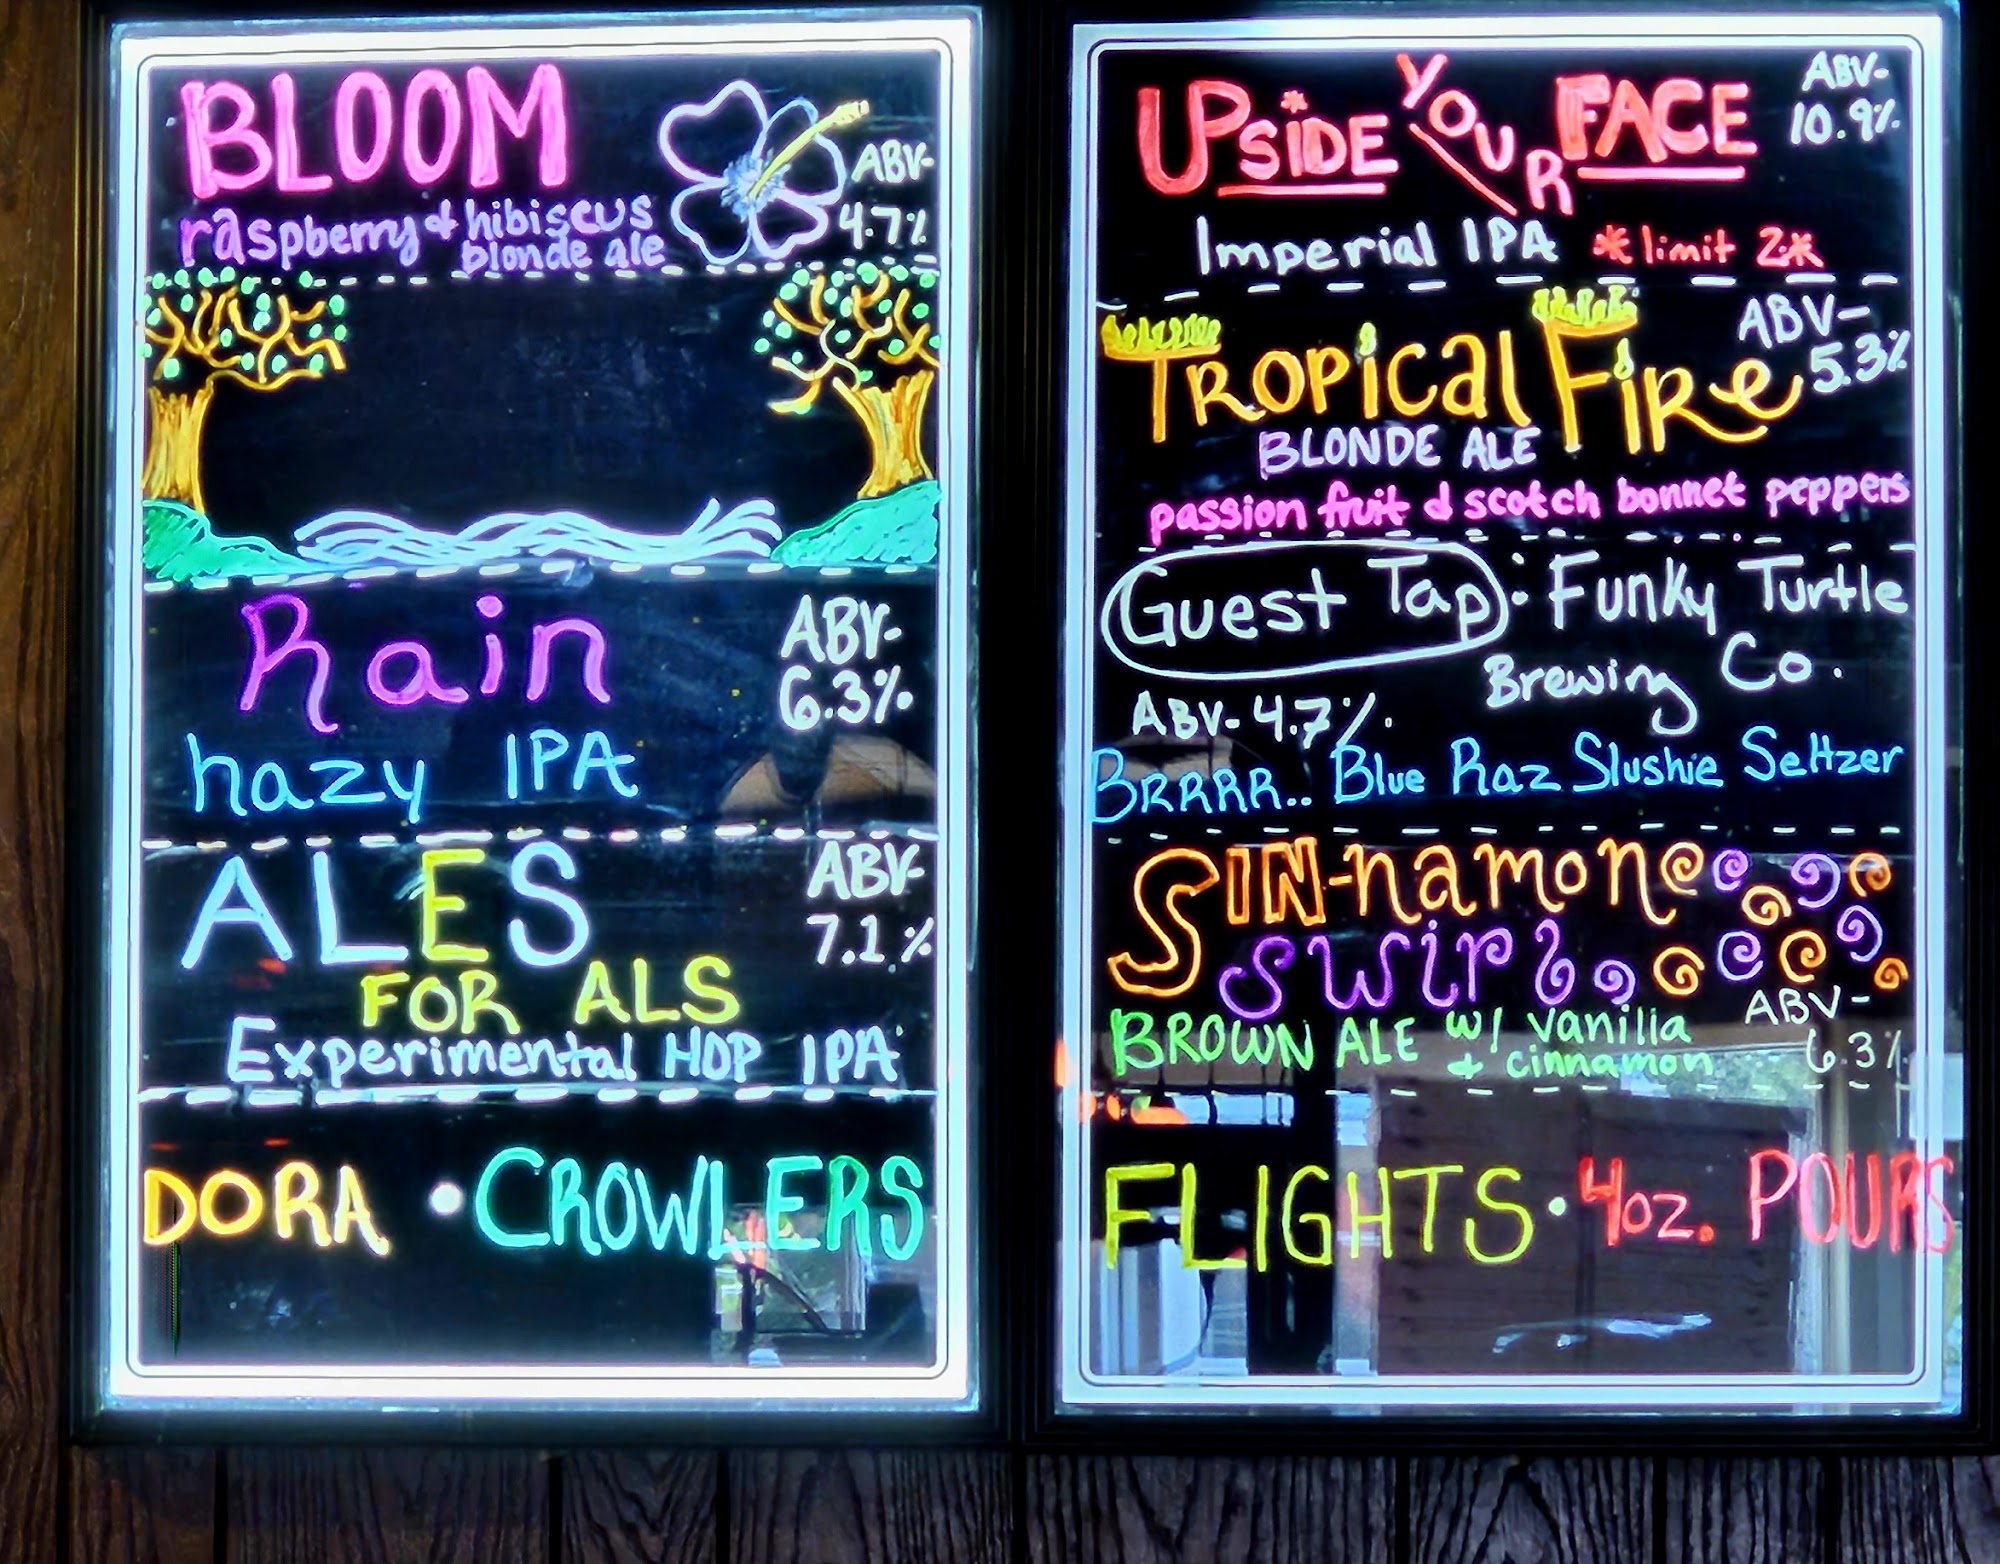 BLOOM
ABV-
4.7%
raspberry & hibiscus
blonde ale
Rain
ABV-
6.3%
hazy IPA
ALES
ABV-
7.1%
FOR ALS
Experimental HOP IPA
DORA • CROWLERS
UPSIDE YOUR FACE
ABV-
10.9%
Imperial IPA *limit 2*
TROPICAL FIRE
ABV-
5.3%
BLONDE ALE
passion fruit & scotch bonnet peppers
Guest Tap: Funky Turtle
Brewing Co.
ABV- 4.7%
BRRRR.. Blue Raz Slushie Seltzer
SIN-namon
swirl
ABV-
6.3%
BROWN ALE w/ vanilla
& cinnamon
FLIGHTS • 4oz. POURS